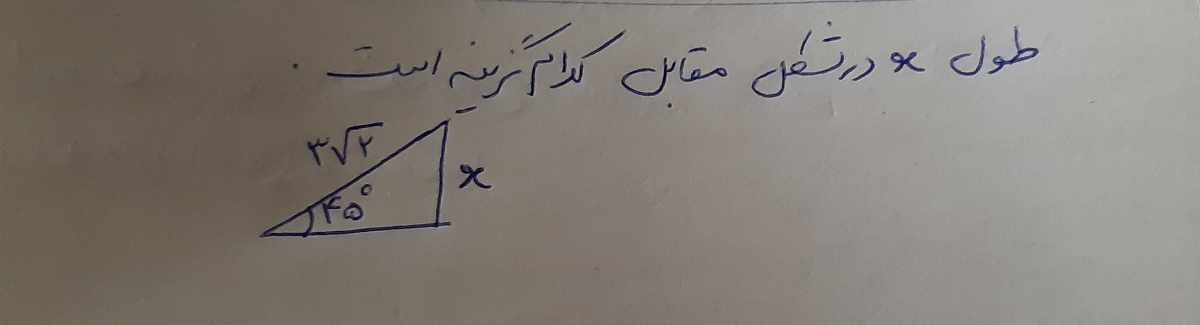 طول x در شکل مقابل کدام گزینه است.
۳√۲
۴۵°
x